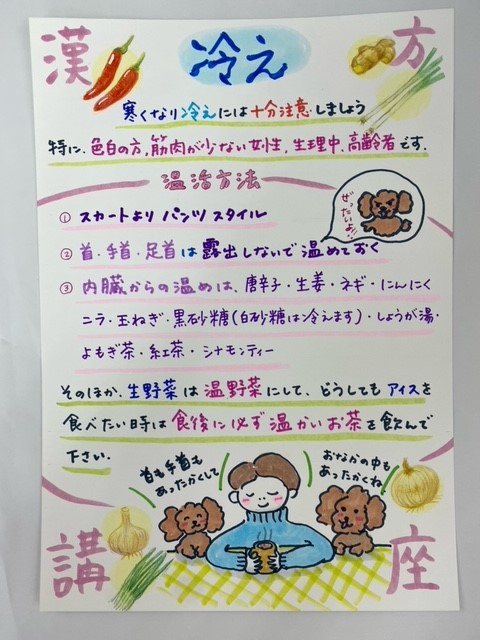 漢方
冷え
寒くなり冷えには十分注意しましょう
特に、色白の方、筋肉が少ない女性、生理中、高齢者です。
温治方法
① スカートより パンツ スタイル
ぜったいよ!!
② 首・手首・足首は露出しないで温めておく
③ 内臓からの温めは、唐辛子・生姜・ネギ・にんにく
ニラ・玉ねぎ・黒砂糖(白砂糖は冷えます)・しょうが湯・
よもぎ茶・紅茶・シナモンティー
そのほか、生野菜は温野菜にして、どうしてもアイスを
食べたい時は食後に必ず温かいお茶を飲んで
下さい。
首も手首も
あったかくして
おなかの中も
あったかくね
講座